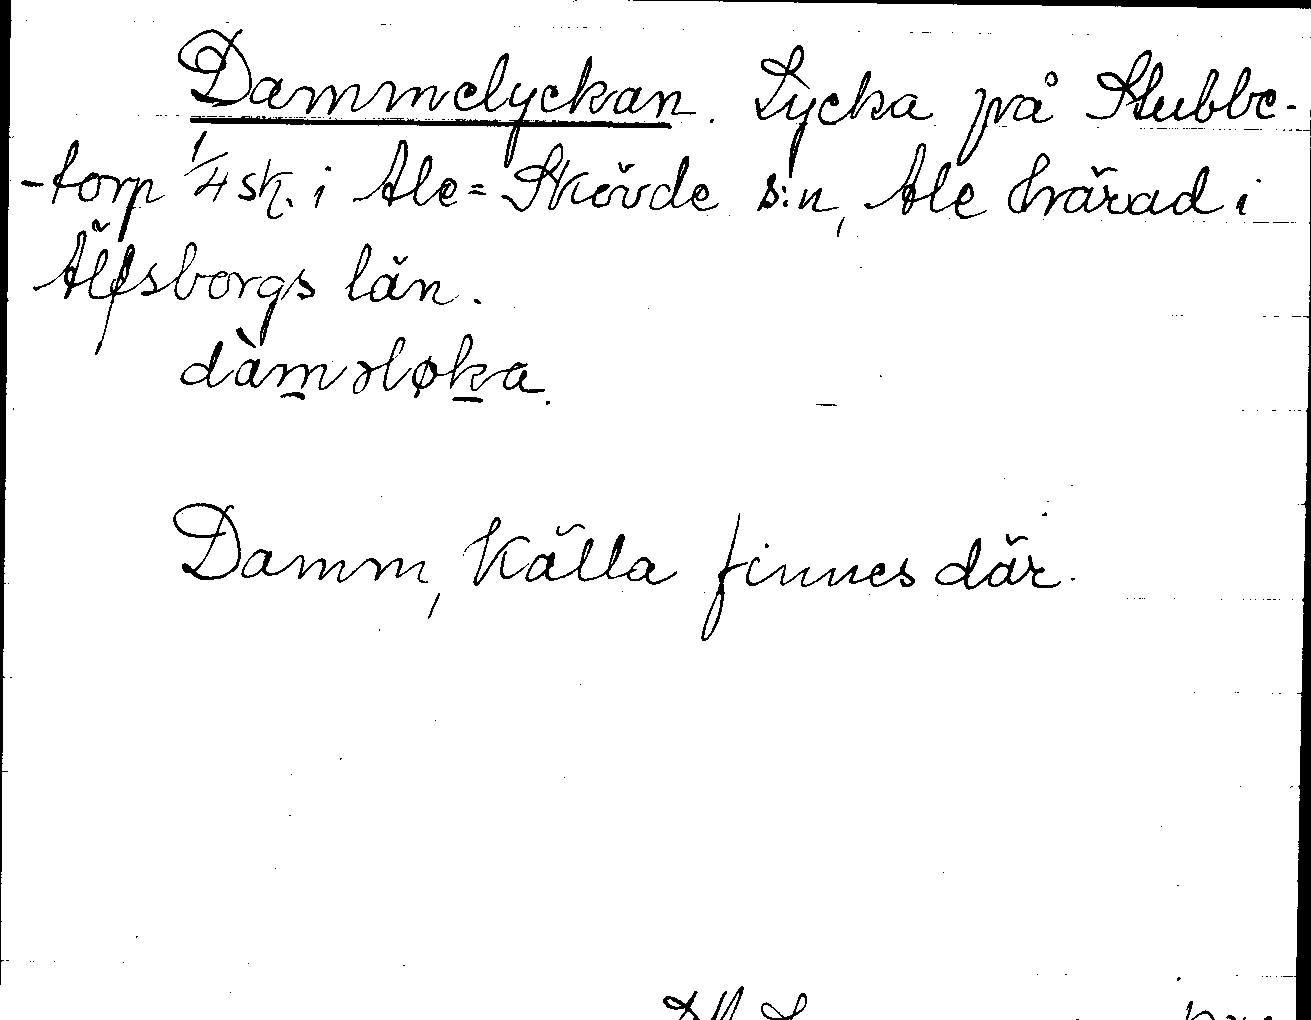 Dammelyckan. Lycka på Stubbe-
-torp 1/4 sk. i Ale=Skövde s:n, Ale härad i
Älfsborgs län.
dàm̲əløk̲a.
Damm, källa finnes där.